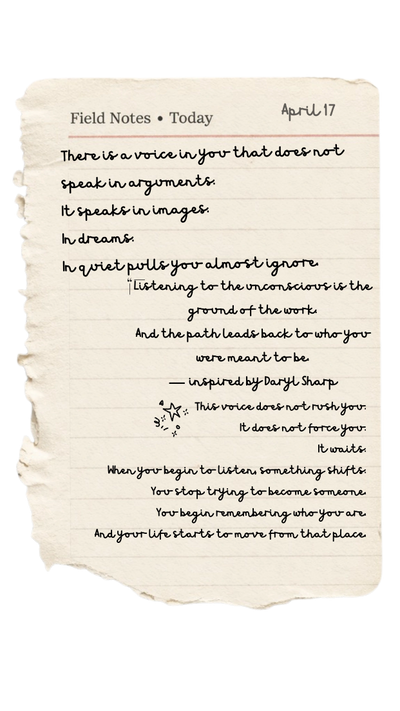 Field Notes • Today
April 17
There is a voice in you that does not
speak in arguments.
It speaks in images.
In dreams.
In quiet pulls you almost ignore.
"Listening to the unconscious is the
ground of the work.
And the path leads back to who you
were meant to be.
— inspired by Daryl Sharp
This voice does not rush you.
It does not force you.
It waits.
When you begin to listen, something shifts.
You stop trying to become someone.
You begin remembering who you are.
And your life starts to move from that place.